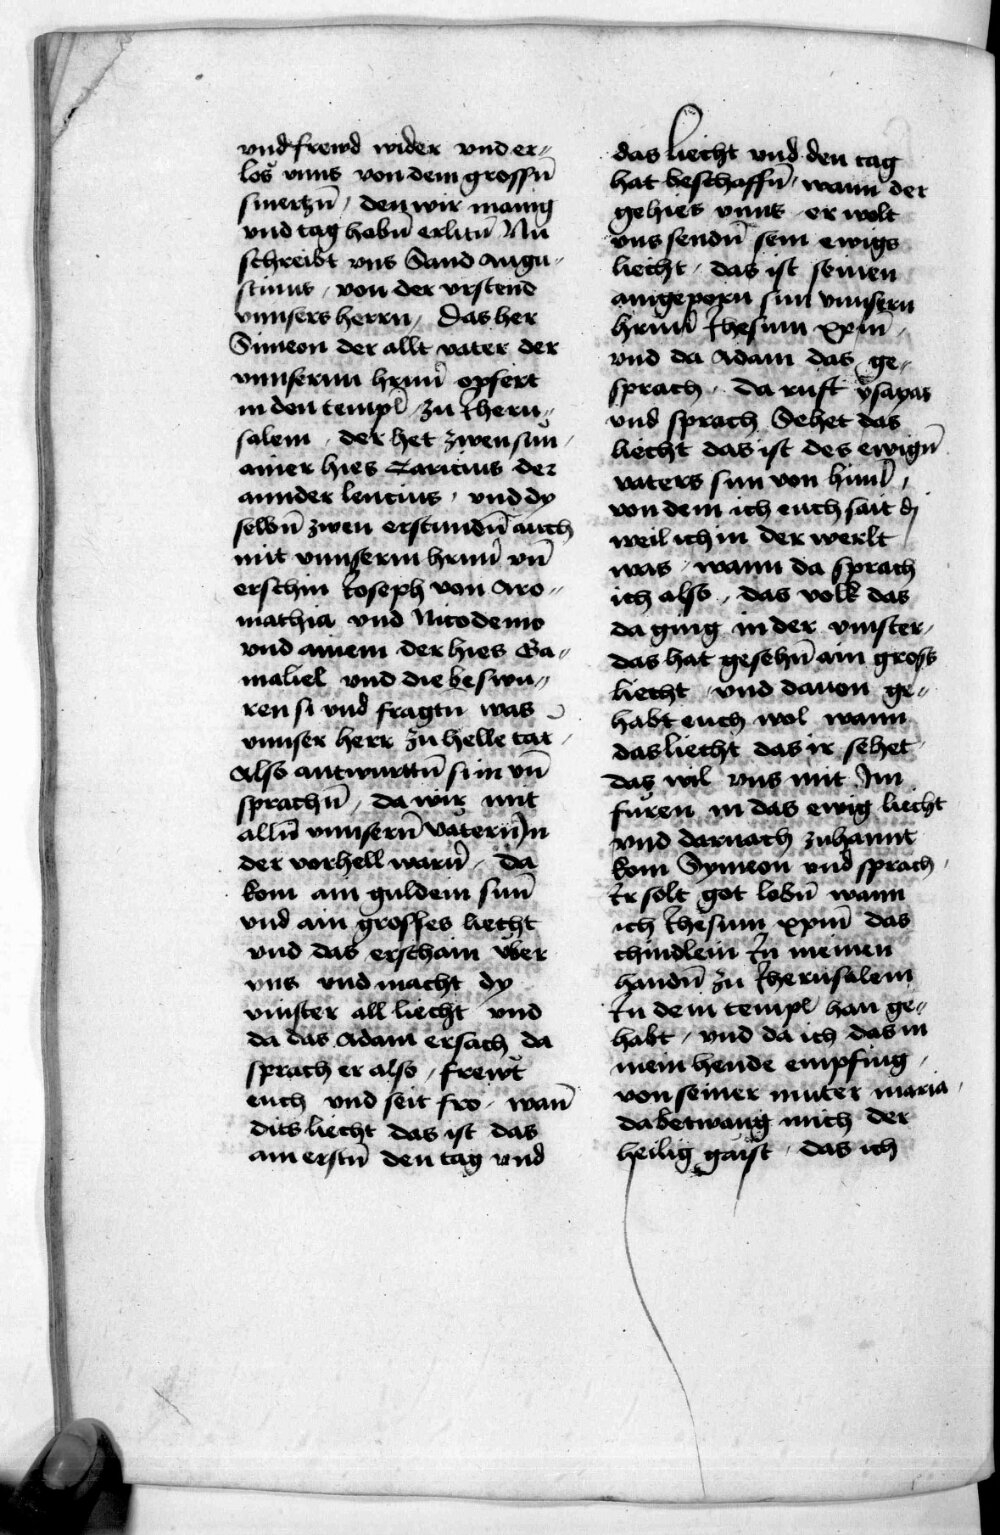 und frewd wider und er„
los unns von dem grossn̄
smertzn̄ / den wir manig
und tag habn̄ erlitn̄ Nu
schreibt uns Sand Augu„
stinus / von der urstend
unnsers herrn / Das her
Simeon der allt vater der
unnserm hrnn̄ opfert
in den templ zu Jheru„
salem / der het zwen sun /
ainer hies Caricius der
annder leucius / und dy
selbn̄ zwen erstundn̄ auch
mit unnserm hrnn̄ un̄
erschin Joseph von Aro„
mathia und Nicodemo
und ainem der hies Ga„
maliel und die beswu„
ren si und fragtn was
unnser herr zu helle tat /
Also antwurttn̄ si im un̄
sprachn̄ / da wir mit
alln̄ unnsern̄ vatern̄ In
der vorhell warn̄ / da
kom ain guldein sun̄
und ain grosses liecht
und das erschain uber
uns und macht dy
vinster all liecht und
da das Adam ersach da
sprach er also / frewt
euch und seit fro / wan̄
dits liecht das ist das
am erstn̄ den tag und
das liecht und den tag
hat beschaffn̄ / wann der
gehies unns er wolt
uns sendn̄ sein ewigs
liecht / das ist seinen
aingeporn sun unnsern
hrnn̄ Jhesum xpm̄ /
und da Adam das ge„
sprach / da ruft ysayas
und sprach Sehet das
liecht das ist des ewign̄
vaters sun von himl /
von dem ich euch sait dj
weil ich in der werlt
was / wann da sprach
ich also / das volk das
da ging in der vinster /
das hat gesehn̄ ain gross
liecht / und davon ge„
habt euch wol wann
das liecht das ir sehet /
das wil uns mit Im
furen in das ewig liecht
und darnach zuhannt
kom Symeon und sprach /
Ir solt got lobn̄ wann
ich Jhesum xpm̄ das
chindlein In meinen
handn̄ zu Jherusalem
In dem templ han ge„
habt / und da ich das in
mein hende empfing /
von seiner muter maria /
da betwang mich der
heilig gaist / das ich